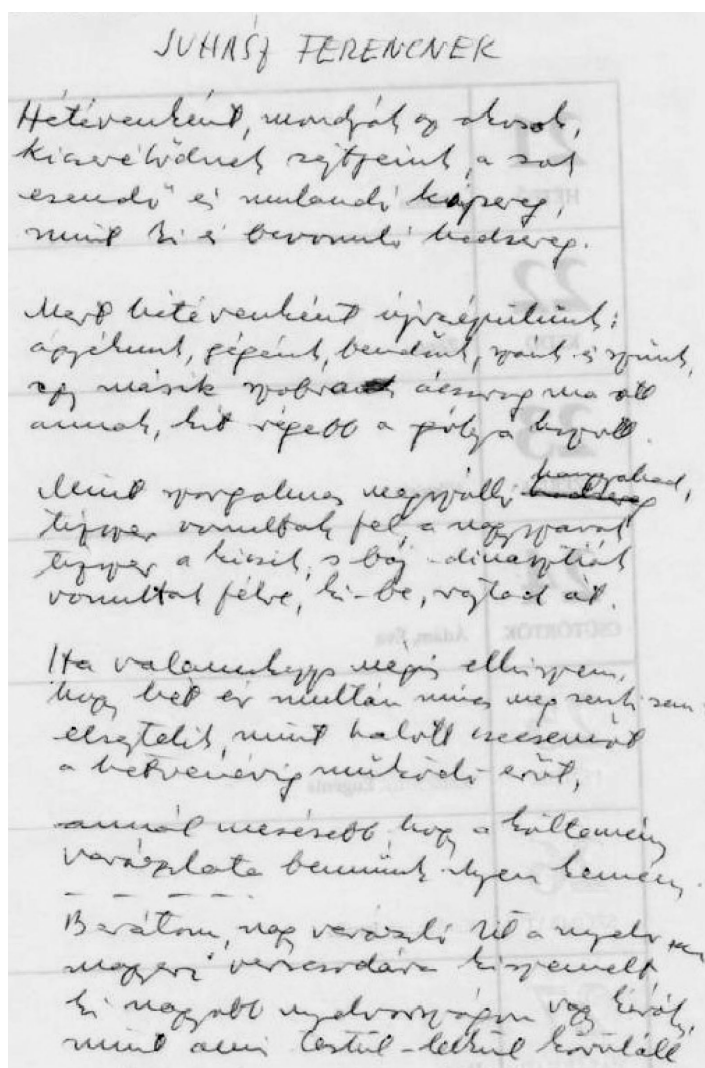 JUHÁSZ FERENCNEK
Hétévenként, mondják az okosok,
kicserélődnek sejtjeink, a sok
esendő és mulandó képsereg,
mint ki és bevonuló hadsereg.
Mert hétévenként újraépülünk:
ágyékunk, gégénk, bendőnk, szánk és szívünk,
egy másik ácsorog ma ott
annak, kit régebb a pólya hozott.
Mint szorgalmas megszálló hangyahad,
tízszer vonultak fel, a nagyszavát
tízszer a kicsik, s báj-dinasztiák
vonultak félre, ki-be, rajtad át.
Ha valamiképp mégis elhiszem,
hogy hét év multán nincs meg senki sem
elsejtelik, mint halott csecsemőt
a hetvenévig működő erőt,
annál mesésebb, hogy a költemény
varázslata bennünk ilyen kemény.
Barátom, nagy varázsló, kit a nyelv
magyari verscsodára kiszemelt
ki nagyobb nyelvországon vagy király,
mint ami testül-lelkül körüláll
21
HÉTFŐ
22
KEDD
23
24
CSÜTÖRTÖK
Ádám, Éva
25
Eugénia
26
27